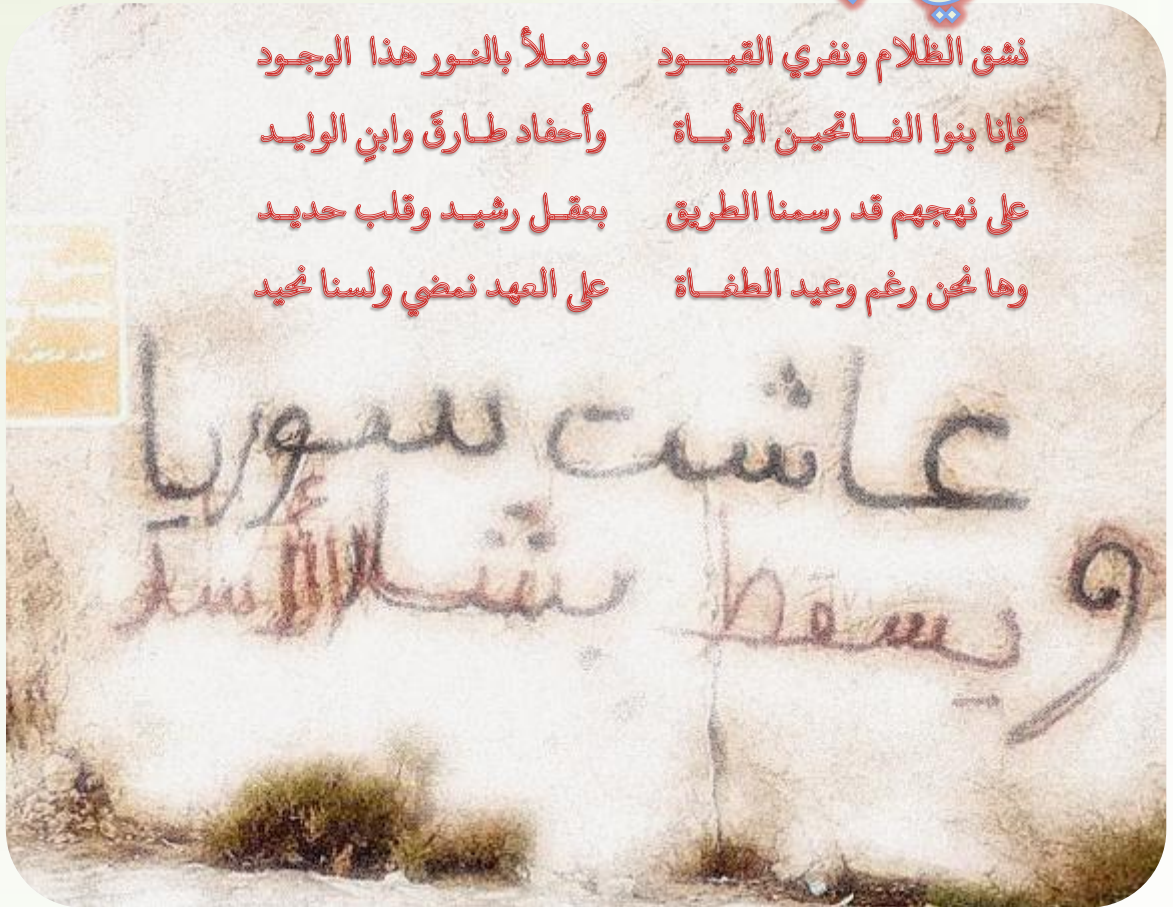 نشق الظلام ونفري القيود ونملأ بالنور هذا الوجود
فإنا بنوا الفاتحين الأباة وأحفاد طارقَ وابنِ الوليد
على نهجهم قد رسمنا الطريق بعقل رشيد وقلب حديد
وها نحن رغم وعيد الطغاة على العهد نمضي ولسنا نحيد
عاشت سوريا
ويسقط بشار الأسد